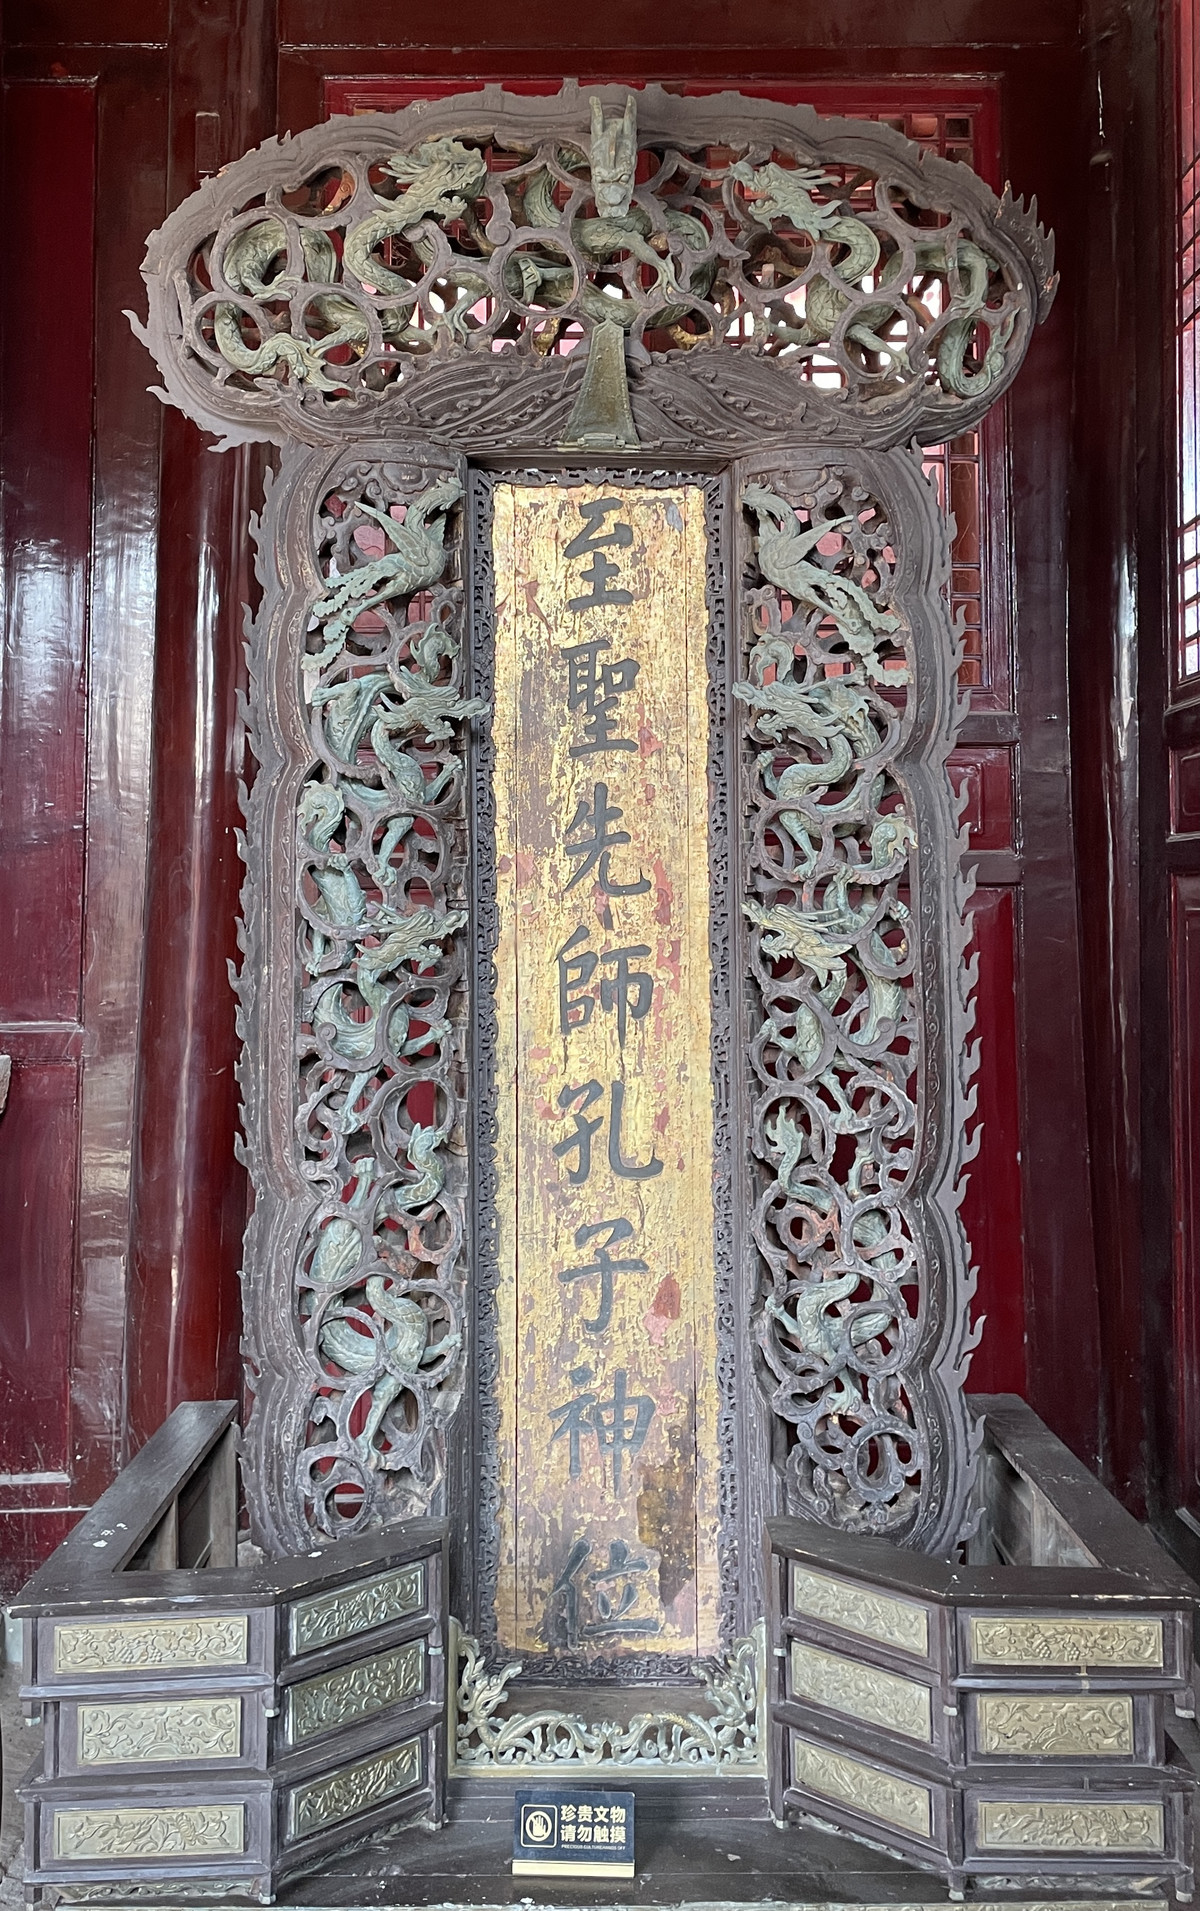 至聖先師孔子神位
珍贵文物
请勿触摸
PRECIOUS CULTURE HANDS OFF